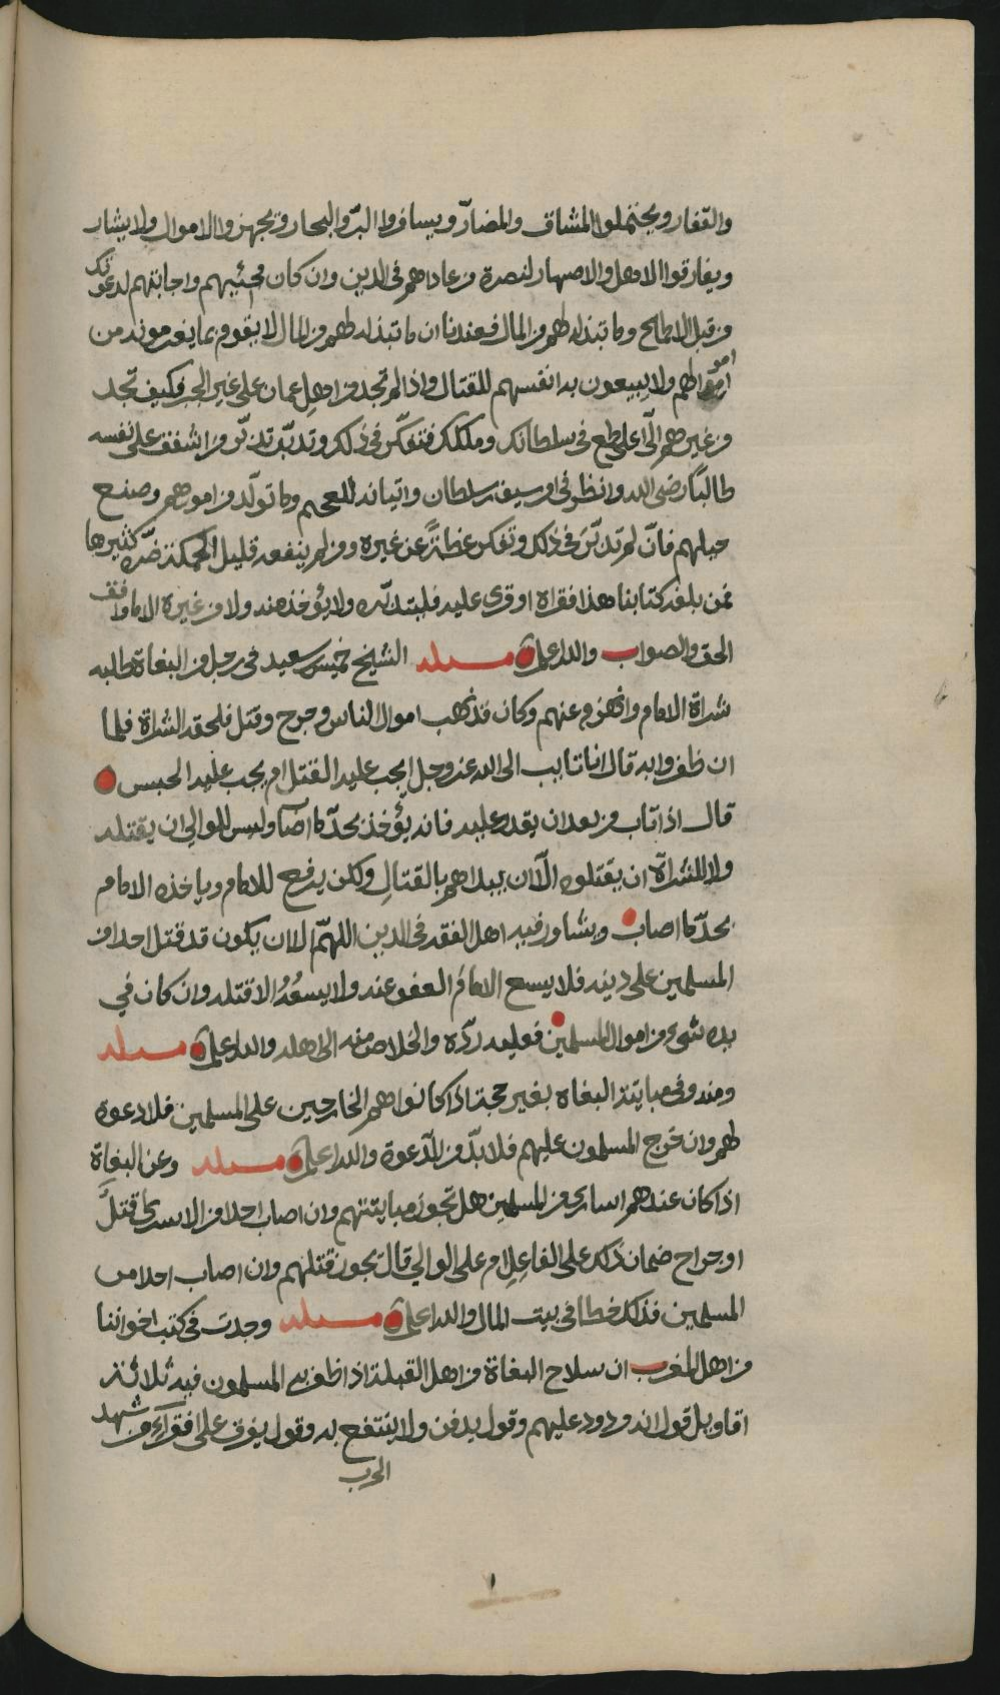 والقفار ويحتملوا المشاق والمضارّ ويسافروا البرّ والبحار ويجهزوا الاموال ولا يشار
ويفارقوا الاهل والاصهار لنصرة من عاداهم في الدين وان كان مجئيهم واجابتهم لدعوتك
من قبل الاطماع وما تبذله لهم من المال فعندنا ان ما تبذله لهم من المال لا يقوم بما يغرمونه من
اموالهم ولا يبيعون به انفسهم للقتال واذا لم تجد من اهل عمان على غير الجبر فكيف تجد
من غيرهم الّا على طمع في سلطانك وملكك فتفكّر في ذلك وتدبّر تدبّر من اشفق على نفسه
طالبًا رضى الله وانظر في امر سيف بن سلطان واتيانه للعجم وما تولّد من امورهم وصنع
حيلهم فان لم تدبّر في ذلك وتفكر عظةً عن غيره ومن لم ينفعه قليل الحكمة ضرّه كثيرها
فمن بلغه كتابنا هذا فقراه او قرى عليه فليتدبّره ولا يؤخذ منه ولا من غيره الا ما وافق
الحق والصواب والله اعلم مسئله الشيخ خميس بن سعيد في رجل من البغاة طلبه
شراة الامام وانهزم عنهم وكان قد نهب اموال الناس وجرح وقتل فلحقه الشراة فلما
ان ظفروا به قال انا تايب الى الله عز وجل ايجب عليه القتل ام يجب عليه الحبس
قال اذا تاب من بعد ان يقدر عليه فانه يؤخذ بحدّ ما اصاب وليس للوالي ان يقتله
ولا للشراة ان يقتلوه الّا ان يبداهم بالقتال ولكن يرفع للامام وياخذه الامام
بحدّ ما اصاب ويشاور فيه اهل الفقه في الدين اللهمّ الا ان يكون قد قتل احدا من
المسلمين على دينه فلا يسع الامام العفو عنه ولا يسعُهُ الا قتله وان كان في
يده شيء من اموال المسلمين فعليه ردّه والخلاص منه الى اهله والله اعلم مسئله
ومنه وفي مبايتة البغاة بغير حجة اذا كانوا هم الخارجين على المسلمين فلا دعوة
لهم وان خرج المسلمون عليهم فلا بدّ من الدّعوة والله اعلم مسئله وعن البغاة
اذا كان عندهم اسارى من المسلمين هل تجوز مبايتتهم وان اصاب احدا من الاسرى قتلٌ
او جراح ضمان ذلك على الفاعل ام على الوالي قال يجوز قتلهم وان اصاب احدا من
المسلمين فذلك خطا في بيت المال والله اعلم مسئله وجدت في كتب اخواننا
من اهل المغرب ان سلاح البغاة من اهل القبلة اذا ظفر به المسلمون فيه ثلاثة
اقاويل قول انه مردود عليهم وقول يدفن ولا ينتفع به وقول يفرق على فقرآء من شهد
الحرب
١